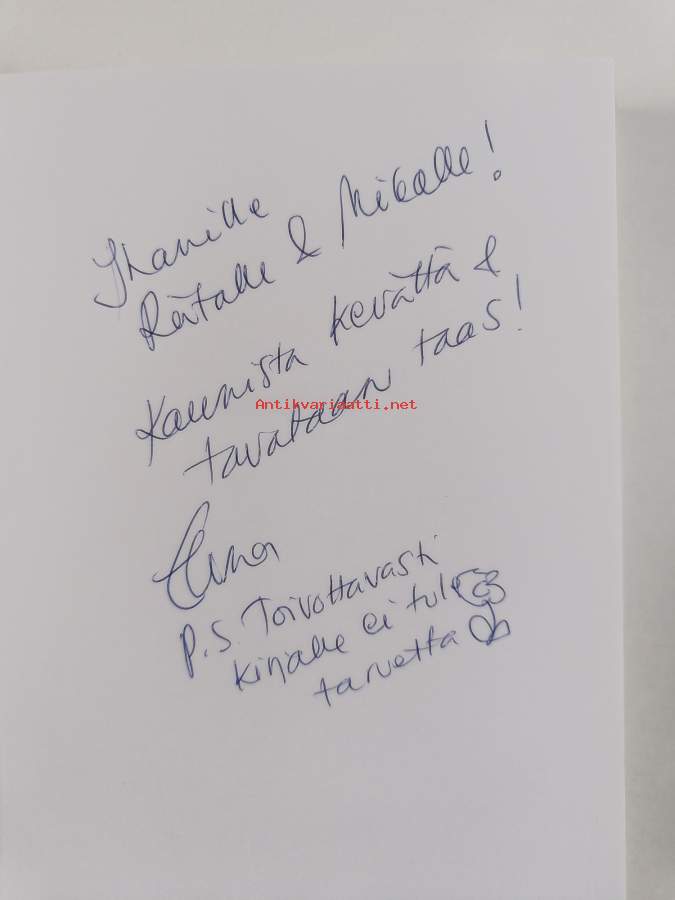 Ihanille
Reetalle & Mikalle!
Kaunista kevättä &
tavataan taas!
Antikvariaatti.net
P.S. Toivottavasti
kirjalle ei tule
tarvetta